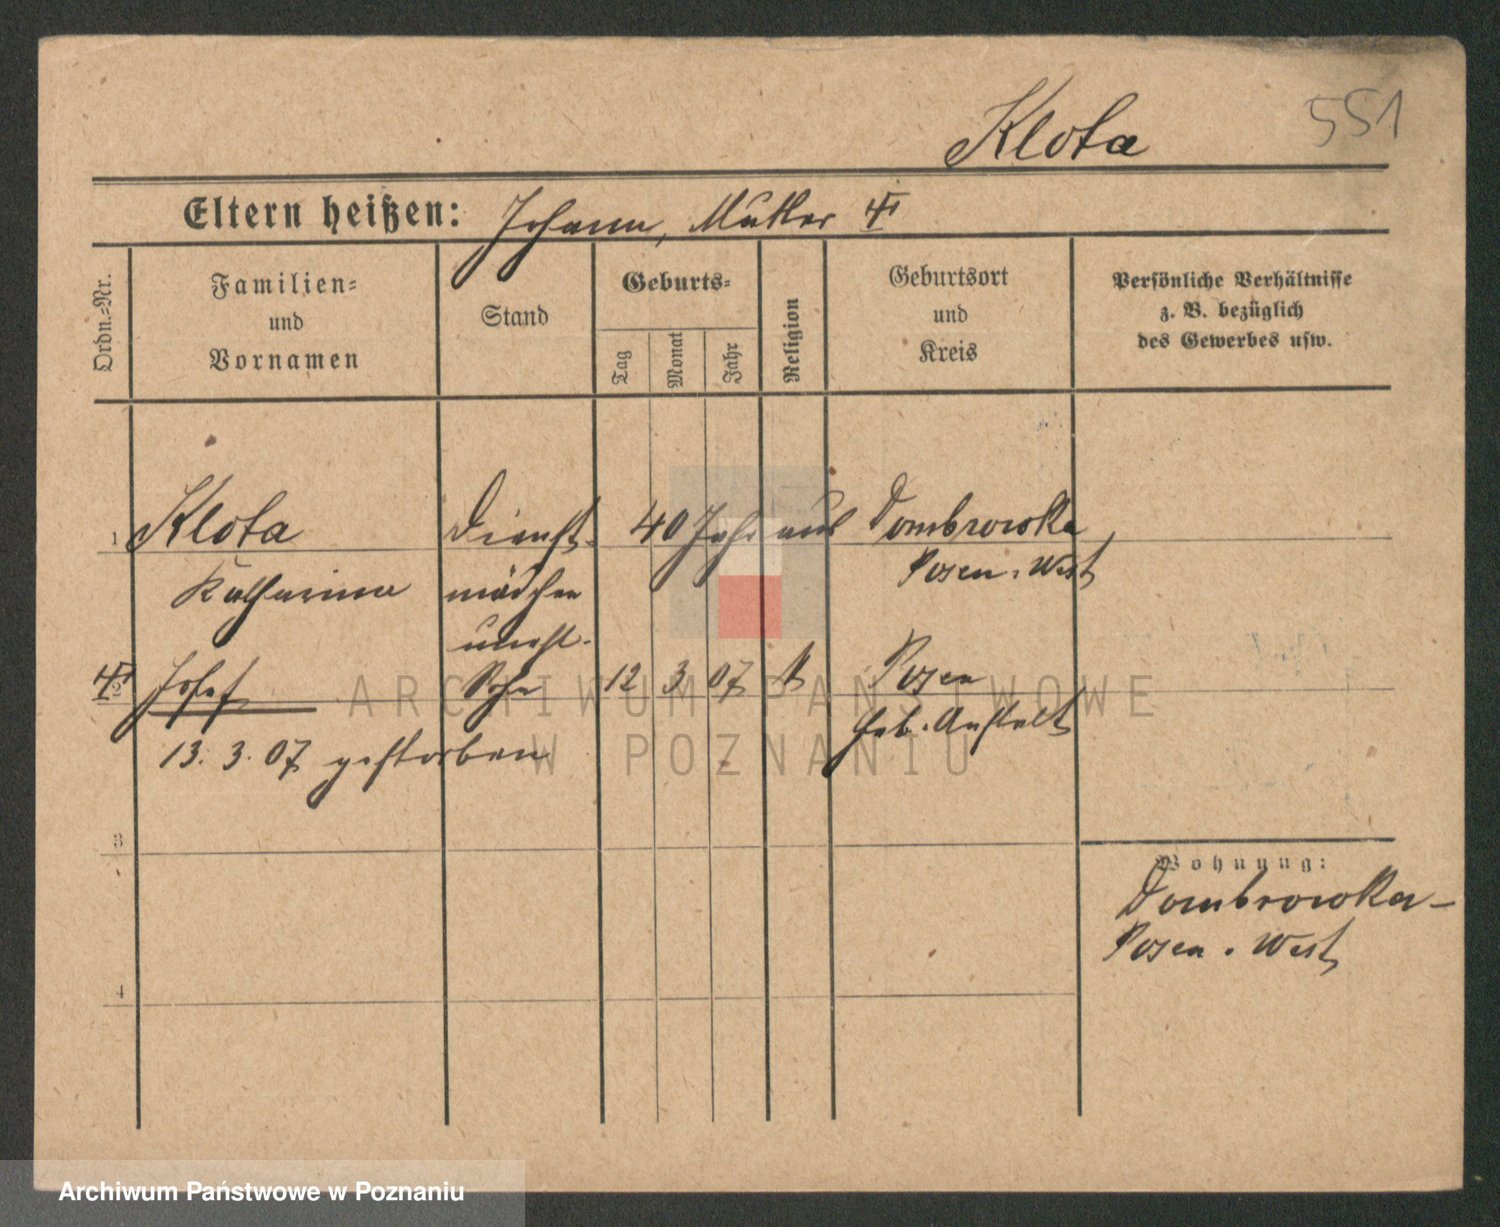 551
Klota
Eltern heißen: Johann, Mutter
Ordn.-Nr.
Familien-
und
Vornamen
Stand
Geburts-
Tag
Monat
Jahr
Religion
Geburtsort
und
Kreis
Persönliche Verhältnisse
z. B. bezüglich
des Gewerbes usw.
1 Klota Dienst- 40 Jahr aus Dombrowka
Katharina mädchen Posen-West
unehl.
2 Josef Sohn 12 3 07 k Posen
Geb. Anstalt
13. 3. 07 gestorben
3
Wohnung:
Dombrowka-
Posen-West
4
ARCHIWUM PAŃSTWOWE
W POZNANIU
Archiwum Państwowe w Poznaniu